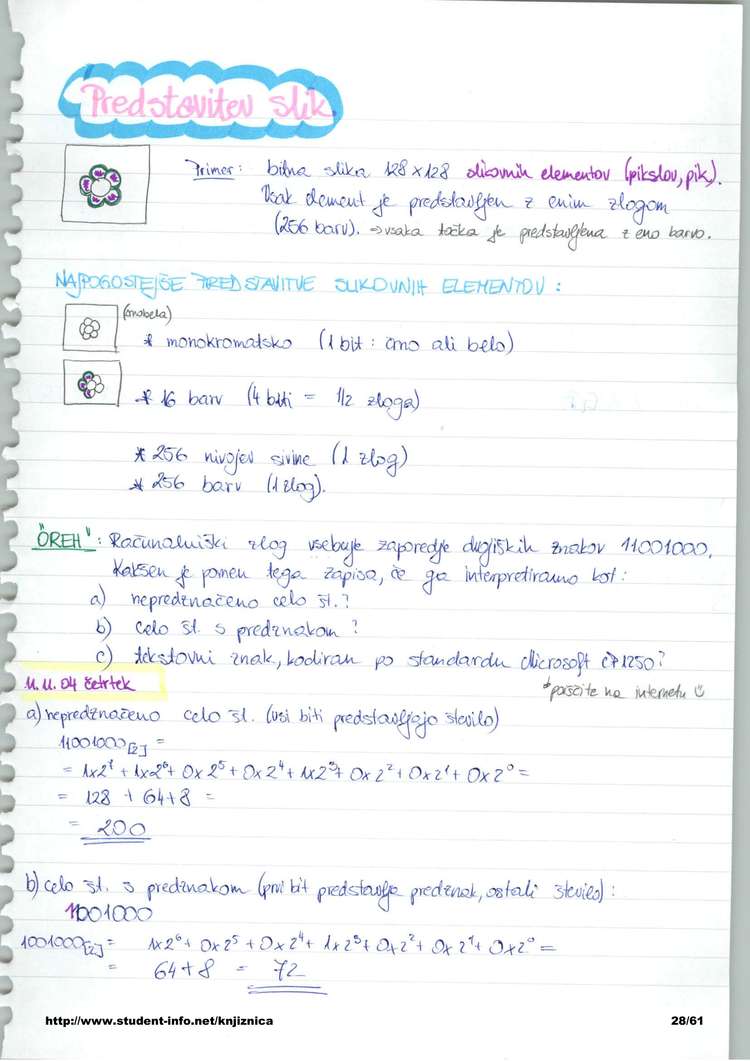 Predstavitev slik
Primer: bitna slika 128 x 128 slikovnih elementov (pikslov, pik).
Vsak element je predstavljen z enim zlogom
(256 barv). ⇒ vsaka točka je predstavljena z eno barvo.
NAJPOGOSTEJŠE PREDSTAVITVE SLIKOVNIH ELEMENTOV :
(črnobela)
* monokromatsko (1 bit : črno ali belo)
* 16 barv (4 biti = 1/2 zloga)
* 256 nivojev sivine (1 zlog)
* 256 barv (1 zlog).
"OREH": Računalniški zlog vsebuje zaporedje dvojiških znakov 11001000.
Kakšen je pomen tega zapisa, če ga interpretiramo kot:
a) nepredznačeno celo št.?
b) celo št. s predznakom ?
c) tekstovni znak, kodiran po standardu Microsoft CP1250?
*poiščite na internetu ☺
11. 11. 04 četrtek
a) nepredznačeno celo št. (vsi biti predstavljajo število)
11001000[2] =
= 1x2⁷ + 1x2⁶ + 0x2⁵ + 0x2⁴ + 1x2³ + 0x2² + 0x2¹ + 0x2⁰ =
= 128 + 64 + 8 =
= 200
b) celo št. s predznakom (prvi bit predstavlja predznak, ostali število) :
11001000
1001000[2] = 1x2⁶ + 0x2⁵ + 0x2⁴ + 1x2³ + 0x2² + 0x2¹ + 0x2⁰ =
= 64 + 8 = 72
http://www.student-info.net/knjiznica 28/61